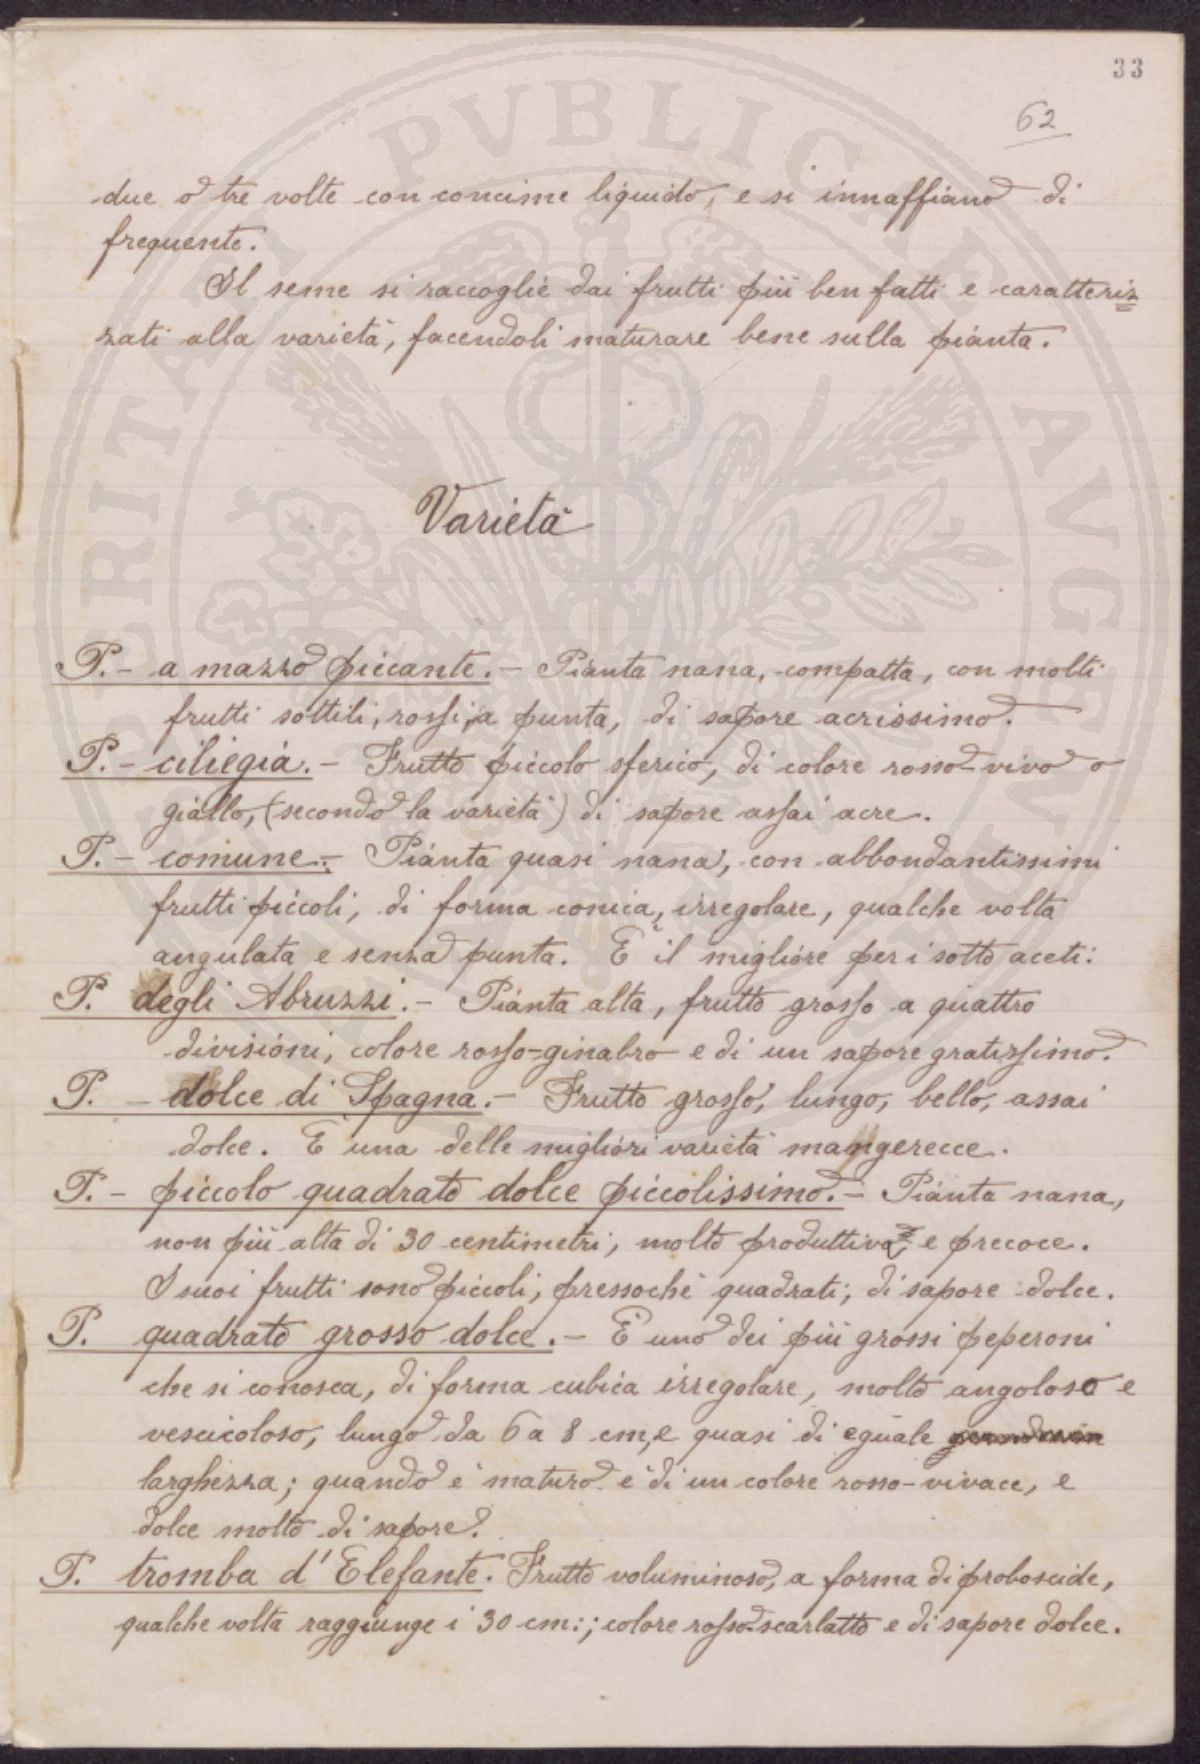 33
62
due o tre volte con concime liquido, e si innaffiano di
frequente.
Il seme si raccoglie dai frutti più ben fatti e caratteriz
zati alla varietà, facendoli maturare bene sulla pianta.
Varietà
P. - a mazzo piccante. - Pianta nana, compatta, con molti
frutti sottili, rossi, a punta, di sapore acrissimo.
P. - ciliegia. - Frutto piccolo sferico, di colore rosso-vivo o
giallo, (secondo la varietà) di sapore assai acre.
P. - comune. - Pianta quasi nana, con abbondantissimi
frutti piccoli, di forma conica, irregolare, qualche volta
angulata e senza punta. È il migliore per i sotto aceti.
P. degli Abruzzi. - Pianta alta, frutto grosso a quattro
divisioni, colore rosso-ginabro e di un sapore gratissimo.
P. - dolce di Spagna. - Frutto grosso, lungo, bello, assai
dolce. È una delle migliori varietà mangerecce.
P. - piccolo quadrato dolce piccolissimo. - Pianta nana,
non più alta di 30 centimetri, molto produttiva, e precoce.
I suoi frutti sono piccoli, pressochè quadrati; di sapore dolce.
P. quadrato grosso dolce. - È uno dei più grossi peperoni
che si conosca, di forma cubica irregolare, molto angoloso e
vescicoloso, lungo da 6 a 8 cm, e quasi di eguale
larghezza; quando è maturo è di un colore rosso-vivace, e
dolce molto di sapore.
P. tromba d'Elefante. Frutto voluminoso, a forma di proboscide,
qualche volta raggiunge i 30 cm.; colore rosso-scarlatto e di sapore dolce.
PERITATI PVBLICAE AVGENDAE